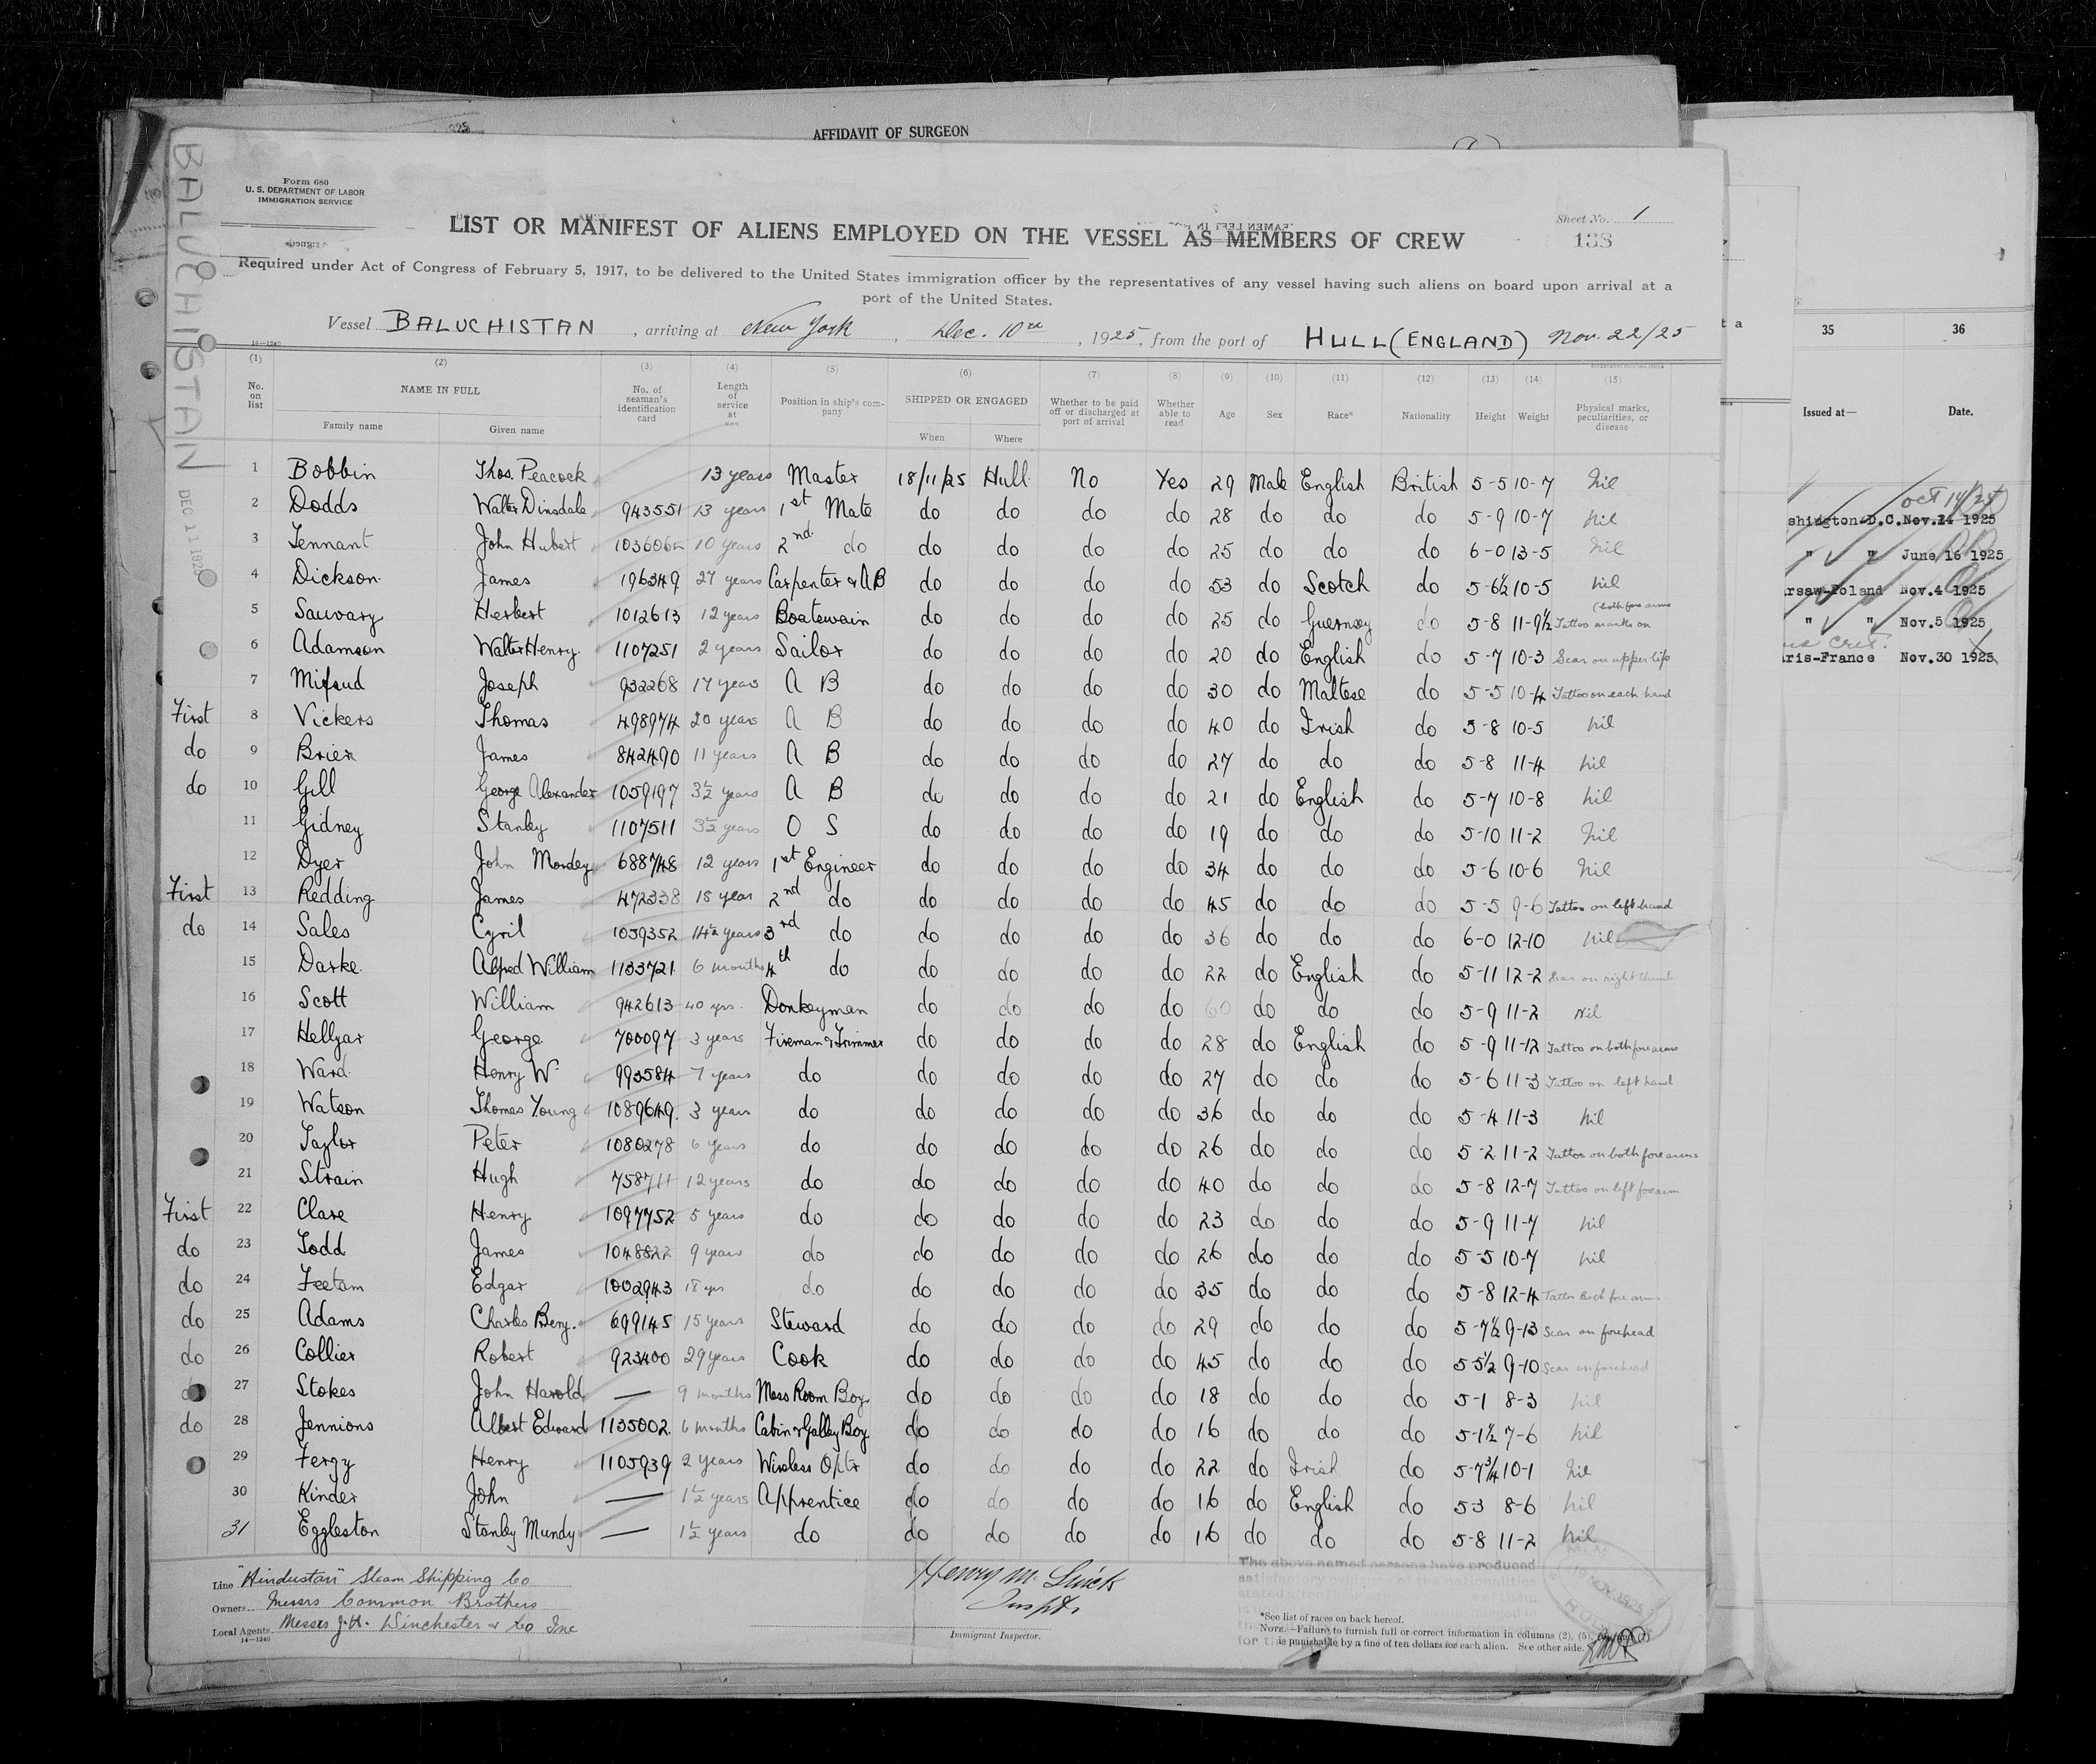 AFFIDAVIT OF SURGEON
BALUCHISTAN
DEC 11 1925
Form 680
U. S. DEPARTMENT OF LABOR
IMMIGRATION SERVICE
Sheet No. 1
138
LIST OR MANIFEST OF ALIENS EMPLOYED ON THE VESSEL AS MEMBERS OF CREW
Required under Act of Congress of February 5, 1917, to be delivered to the United States immigration officer by the representatives of any vessel having such aliens on board upon arrival at a
port of the United States.
Vessel BALUCHISTAN, arriving at New York, Dec. 10th, 1925, from the port of HULL (ENGLAND) Nov. 22/25
14-1240
(1) (2) (3) (4) (5) (6) (7) (8) (9) (10) (11) (12) (13) (14) (15)
No. on list NAME IN FULL No. of seaman's identification card Length of service at sea Position in ship's company SHIPPED OR ENGAGED Whether to be paid off or discharged at port of arrival Whether able to read Age Sex Race* Nationality Height Weight Physical marks, peculiarities, or disease
Family name Given name When Where
1 Bobbin Thos. Peacock 13 years Master 18/11/25 Hull No Yes 29 Male English British 5-5 10-7 Nil
2 Dodds Walter Dinsdale 943551 13 years 1st Mate do do do do 28 do do do 5-9 10-7 Nil
3 Tennant John Hubert 1036062 10 years 2nd do do do do do 25 do do do 6-0 13-5 Nil
4 Dickson James 196349 27 years Carpenter & AB do do do do 53 do Scotch do 5-6½ 10-5 Nil
5 Sauvary Herbert 1012613 12 years Boatswain do do do do 25 do Guernsey do 5-8 11-9½ Tattoo marks on (both fore arms
6 Adamson Walter Henry 1107251 2 years Sailor do do do do 20 do English do 5-7 10-3 Scar on upper lip
7 Mifsud Joseph 932268 17 years A B do do do do 30 do Maltese do 5-5 10-4 Tattoo on each hand
First 8 Vickers Thomas 498974 20 years A B do do do do 40 do Irish do 5-8 10-5 Nil
do 9 Brier James 842490 11 years A B do do do do 27 do do do 5-8 11-4 Nil
do 10 Gill George Alexander 1059197 3½ years A B do do do do 21 do English do 5-7 10-8 Nil
11 Gidney Stanley 1107511 3½ years O S do do do do 19 do do do 5-10 11-2 Nil
12 Dyer John Mordey 688748 12 years 1st Engineer do do do do 34 do do do 5-6 10-6 Nil
First 13 Redding James 472338 18 year 2nd do do do do do 45 do do do 5-5 9-6 Tattoo on left hand
do 14 Sales Cyril 1059352 14½ years 3rd do do do do do 36 do do do 6-0 12-10 Nil
15 Darke Alfred William 1133721 6 months 4th do do do do do 22 do English do 5-11 12-2 Scar on right thumb
16 Scott William 942613 40 yrs. Donkeyman do do do do 60 do do do 5-9 11-2 Nil
17 Hellyar George 700097 3 years Fireman & Trimmer do do do do 28 do English do 5-9 11-12 Tattoo on both forearms
18 Ward Henry W 993584 7 years do do do do do 27 do do do 5-6 11-3 Tattoo on left hand
19 Watson Thomas Young 1089649 3 years do do do do do 36 do do do 5-4 11-3 Nil
20 Taylor Peter 1080278 6 years do do do do do 26 do do do 5-2 11-2 Tattoo on both fore arms
21 Strain Hugh 758711 12 years do do do do do 40 do do do 5-8 12-7 Tattoo on left forearm
First 22 Clare Henry 1097752 5 years do do do do do 23 do do do 5-9 11-7 Nil
do 23 Todd James 1048822 9 years do do do do do 26 do do do 5-5 10-7 Nil
do 24 Feetam Edgar 1002943 18 yrs do do do do do 35 do do do 5-8 12-4 Tattoo Both fore arms
do 25 Adams Charles Benj. 699145 15 years Steward do do do do 29 do do do 5-7½ 9-13 Scar on forehead
do 26 Collier Robert 923400 29 years Cook do do do do 45 do do do 5 5½ 9-10 Scar on forehead
do 27 Stokes John Harold — 9 months Mess Room Boy do do do do 18 do do do 5-1 8-3 Nil
do 28 Jennions Albert Edward 1135002 6 months Cabin & Galley Boy do do do do 16 do do do 5-1½ 7-6 Nil
29 Fergy Henry 1105939 2 years Wireless Optr do do do do 22 do Irish do 5-7¾ 10-1 Nil
30 Kinder John — 1½ years Apprentice do do do do 16 do English do 5 3 8-6 Nil
31 Eggleston Stanley Mundy — 1½ years do do do do do 16 do do do 5-8 11-2 Nil
Line "Hindustan" Steam Shipping Co
Owners Messrs Common Brothers
Local Agents Messrs J. H. Winchester & Co Inc
14-1240
Immigrant Inspector.
The above named persons have produced
satisfactory evidence of their nationalities
*See list of races on back hereof.
NOTE.—Failure to furnish full or correct information in columns (2), (5),
is punishable by a fine of ten dollars for each alien. See other side.
35 36
Issued at— Date.
Oct 14/25
shington-D.C. Nov. 24 1925
" " June 16 1925
rsaw-Poland Nov. 4 1925
" " Nov. 5 1925
ris-France Nov. 30 1925